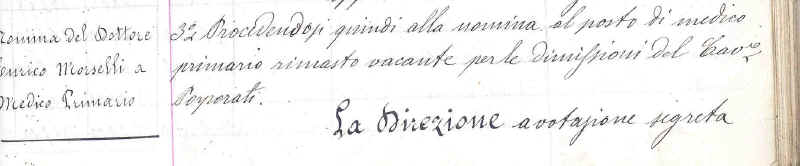 Nomina del Dottore
Enrico Morselli a
Medico Primario
32 Procedendosi quindi alla nomina al posto di medico
primario rimasto vacante per le dimissioni del Cav.re
Porporati.
La Direzione a votazione segreta